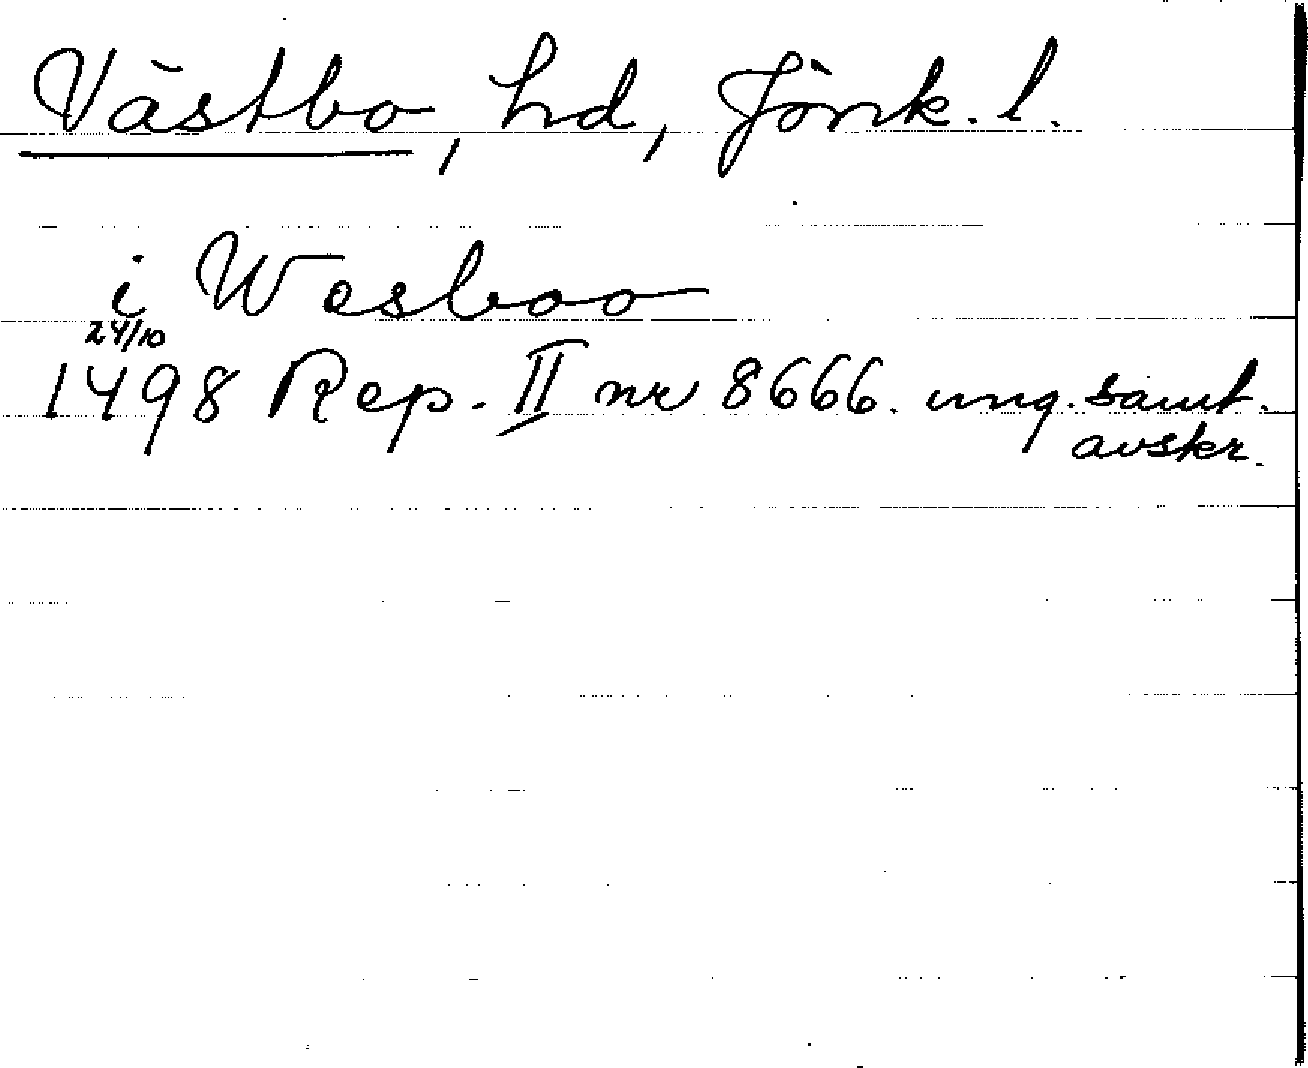 Västbo, hd, Jönk. l.
i Wesboo
24/10
1498 Rep. II nr 8666. ung. samt.
avskr.